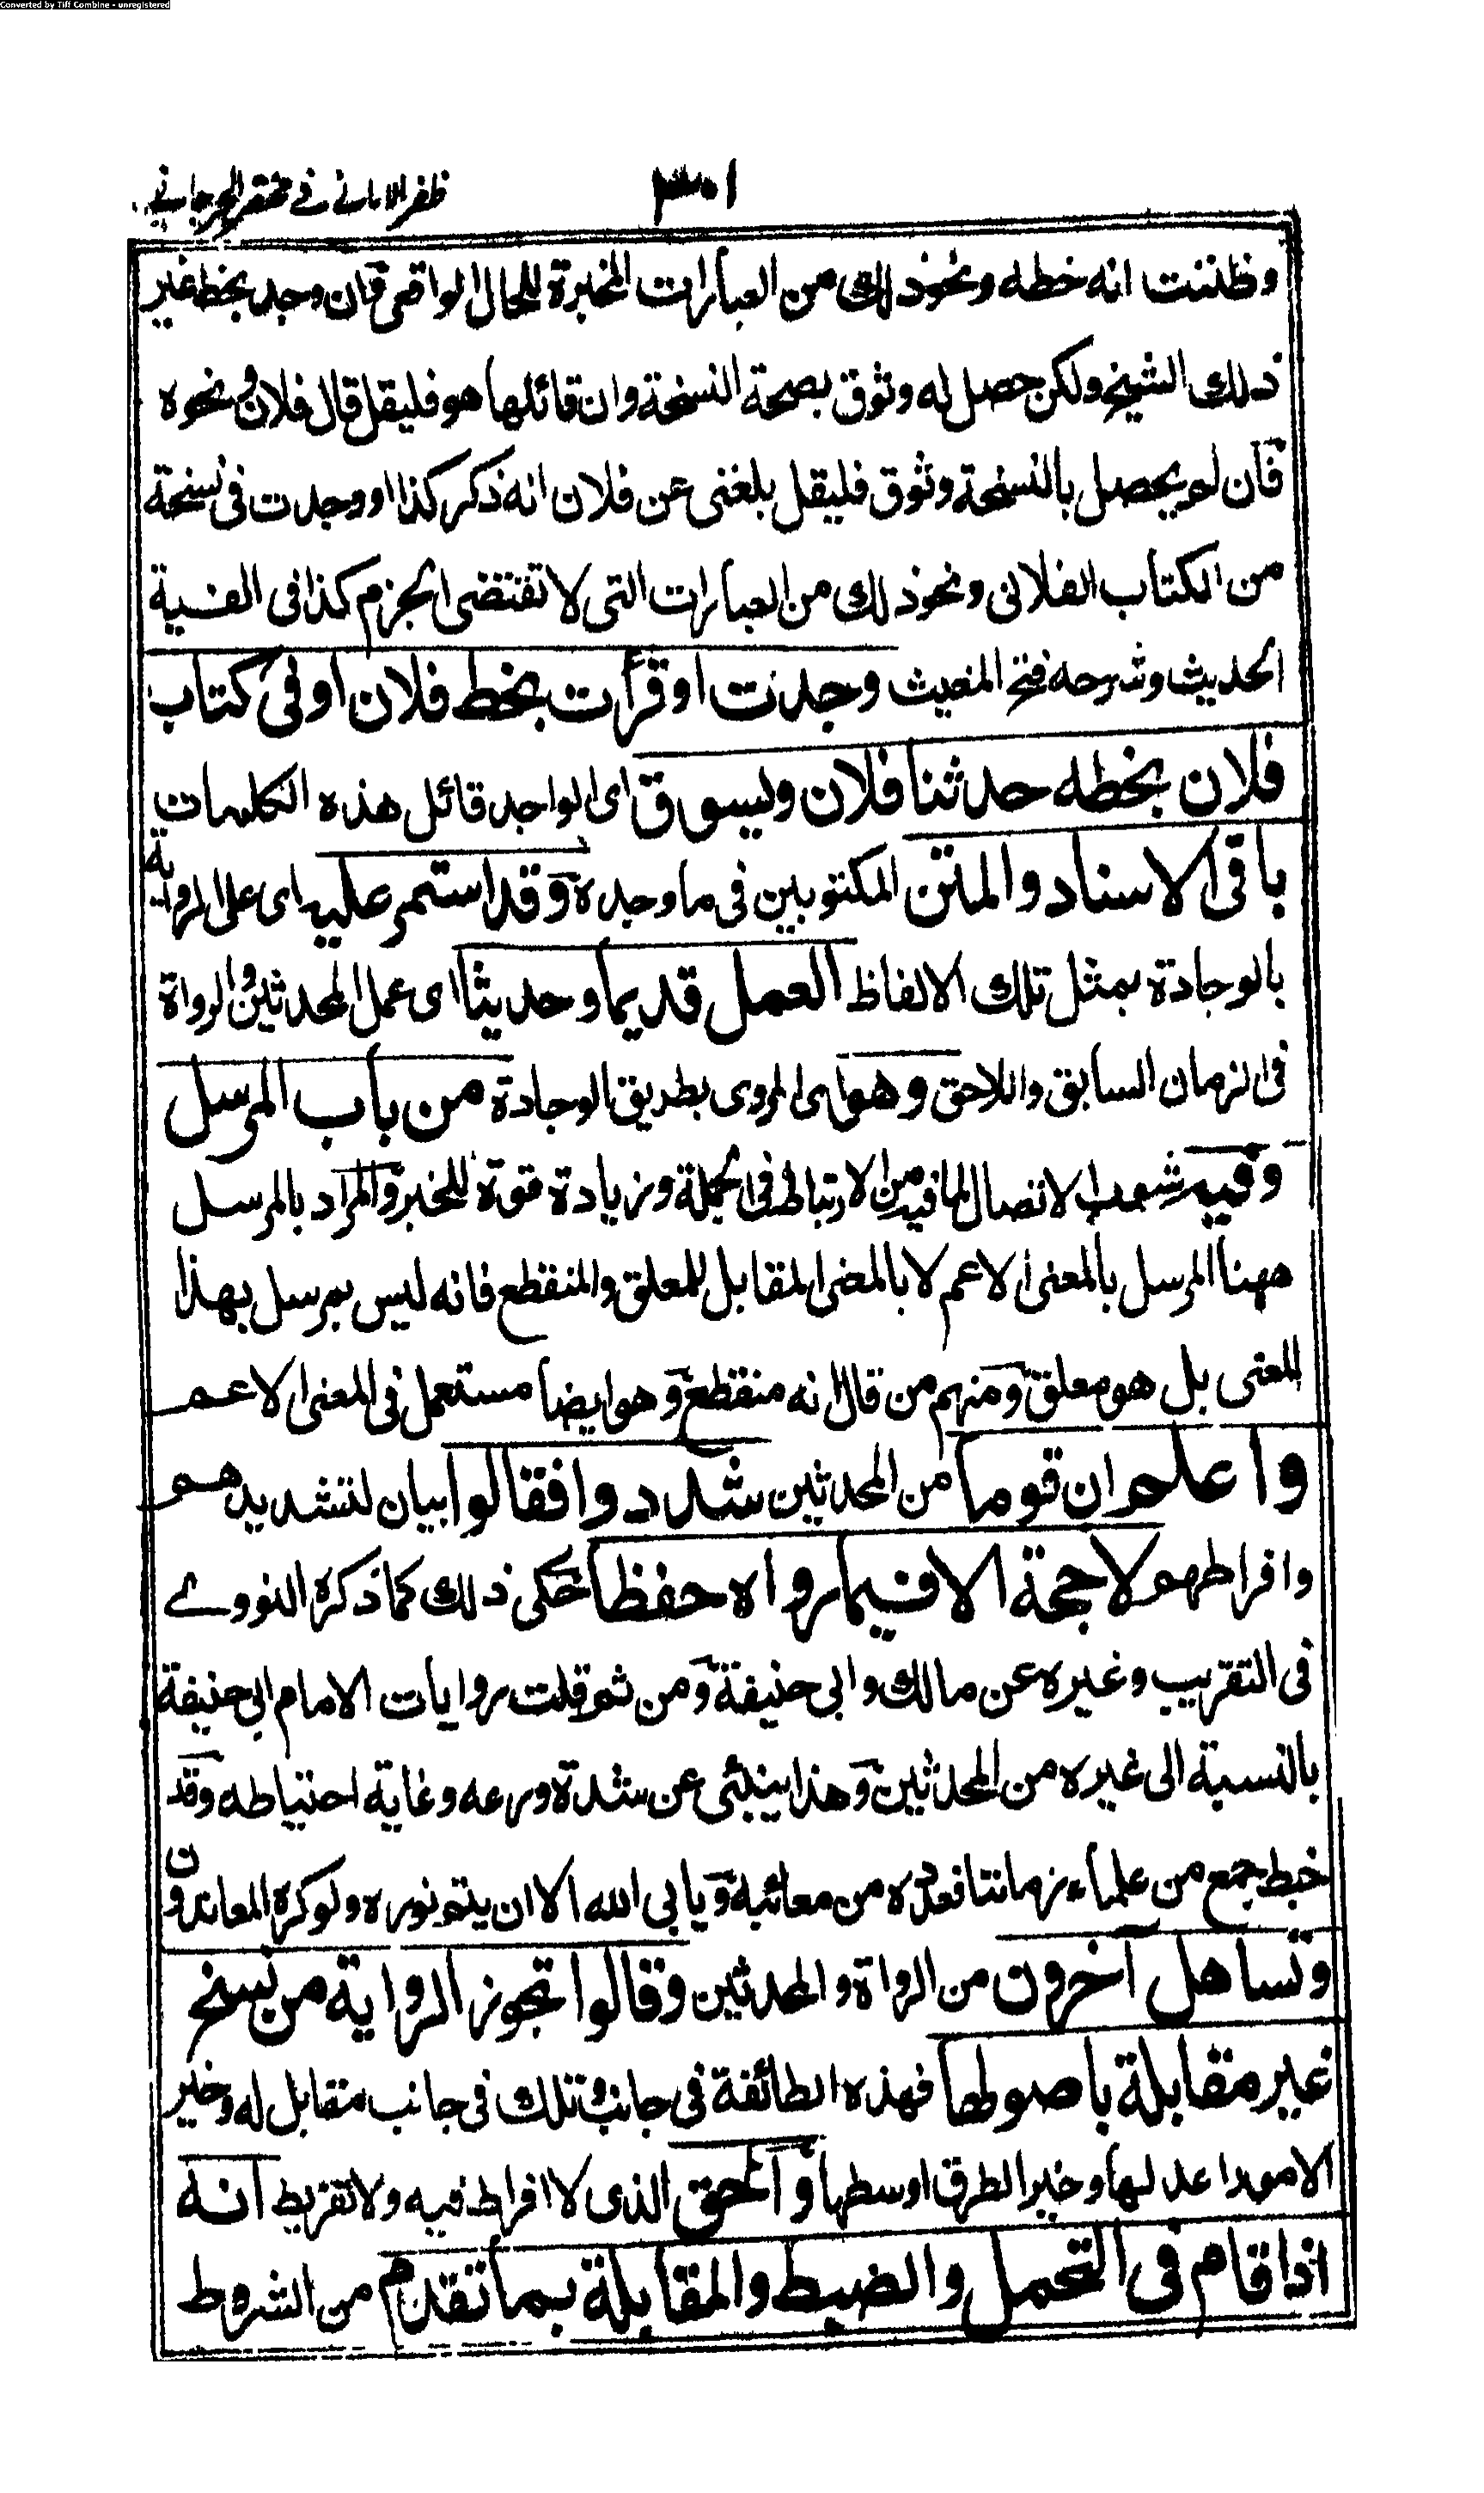 Converted by Tiff Combine - unregistered
ظفر الامانى فى مختصر الجرجانى
٣٠١
وظننت انه خطه ونحو ذلك من العبارات المخبرة للحال الواقعى فان وجد بخط غير
ذلك الشيخ ولكن حصل له وثوق بصحة النسخة وان قائلها هو فليقل قال فلان ونحوه
فان لم يحصل بالنسخة وثوق فليقل بلغنى عن فلان انه ذكر كذا او وجدت فى نسخة
من الكتاب الفلانى ونحو ذلك من العبارات التى لا تقتضى الجزم كذا فى الفية
الحديث وشرحه فتح المغيث وجدت او قرأت بخط فلان او فى كتاب
فلان بخطه حدثنا فلان ويسوق اى الواجد قائل هذه الكلمات
باقى الاسناد والمتن المكتوبين فى ما وجده وقد استمر عليه اى على الرواية
بالوجادة بمثل تلك الالفاظ العمل قديما وحديثا اى عمل المحدثين والرواة
فى الزمان السابق واللاحق وهو اى المروى بطريق الوجادة من باب المرسل
وفيه شوب الاتصال لما فيه من الارتباط فى الجملة وزيادة قوة للخبر والمراد بالمرسل
ههنا المرسل بالمعنى الاعم لا بالمعنى المقابل للمعلق والمنقطع فانه ليس بمرسل بهذا
المعنى بل هو معلق ومنهم من قال انه منقطع وهو ايضا مستعمل فى المعنى الاعم
واعلم ان قوما من المحدثين شددوا فقالوا بيان لتشديدهم
وافراطهم لا حجة الا فيما رواه حفظا حكى ذلك كما ذكره النووى
فى التقريب وغيره عن مالك وابى حنيفة ومن ثم قلت روايات الامام ابى حنيفة
بالنسبة الى غيره من المحدثين وهذا ينبئ عن شدة ورعه وغاية احتياطه وقد
خبط جمع من علماء زماننا فعدوه من معائبه ويابى الله الا ان يتم نوره ولو كره المعاندون
وتساهل آخرون من الرواة والمحدثين وقالوا تجوز الرواية من نسخ
غير مقابلة باصولها فهذه الطائفة فى جانب وتلك فى جانب مقابل له وخير
الامور اعدلها وخير الطرق اوسطها والحق الذى لا افراط فيه ولا تفريط انه
اذا قام فى التحمل والضبط والمقابلة بما تقدم من الشروط